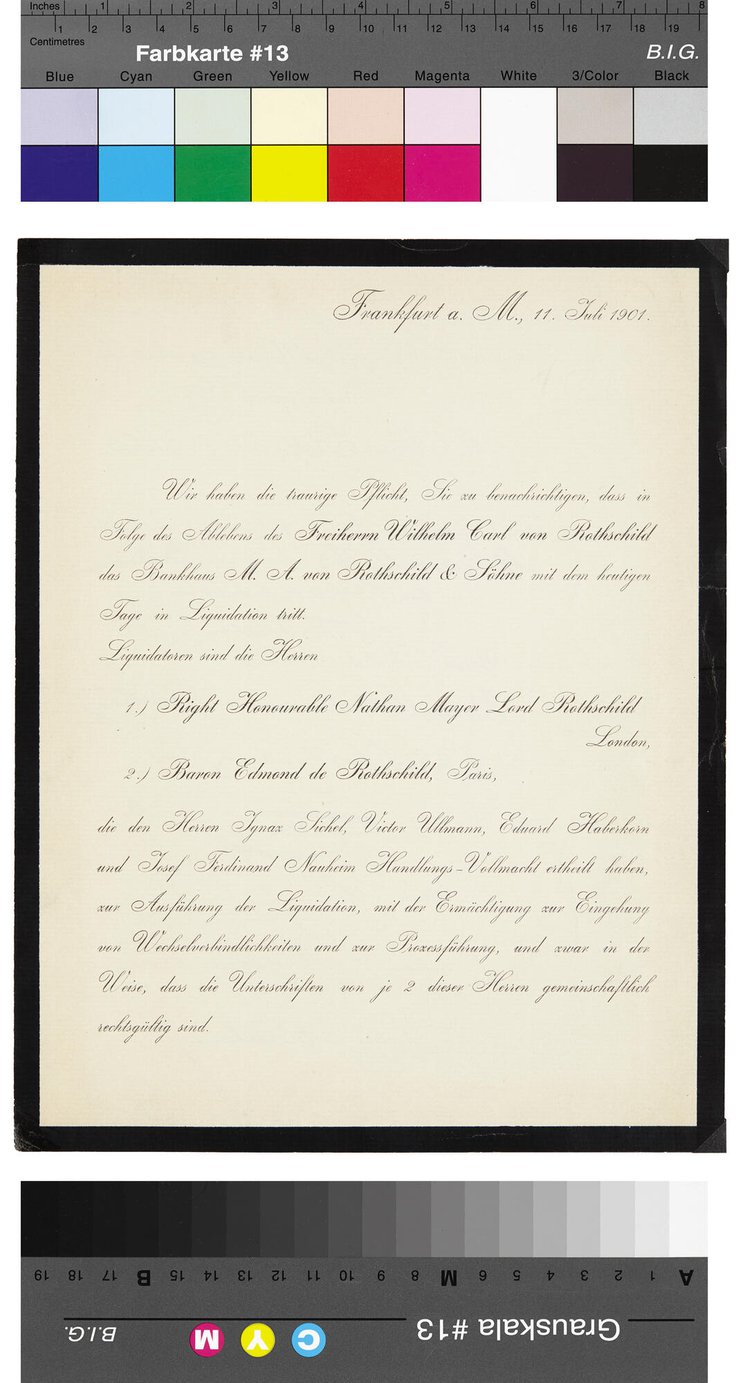 Inches 1 2 3 4 5 6 7 8
Centimetres 1 2 3 4 5 6 7 8 9 10 11 12 13 14 15 16 17 18 19
Farbkarte #13 B.I.G.
Blue Cyan Green Yellow Red Magenta White 3/Color Black
Frankfurt a. M., 11. Juli 1901.
Wir haben die traurige Pflicht, Sie zu benachrichtigen, dass in
Folge des Ablebens des Freiherrn Wilhelm Carl von Rothschild
das Bankhaus M. A. von Rothschild & Söhne mit dem heutigen
Tage in Liquidation tritt.
Liquidatoren sind die Herren
1.) Right Honourable Nathan Mayer Lord Rothschild
London,
2.) Baron Edmond de Rothschild, Paris,
die den Herren Ignaz Sichel, Victor Ullmann, Eduard Haberkorn
und Josef Ferdinand Nauheim Handlungs-Vollmacht ertheilt haben,
zur Ausführung der Liquidation, mit der Ermächtigung zur Eingehung
von Wechselverbindlichkeiten und zur Prozessführung, und zwar in der
Weise, dass die Unterschriften von je 2 dieser Herren gemeinschaftlich
rechtsgültig sind.
A 1 2 3 4 5 6 M 8 9 10 11 12 13 14 15 B 17 18 19
Grauskala #13 C Y M B.I.G.